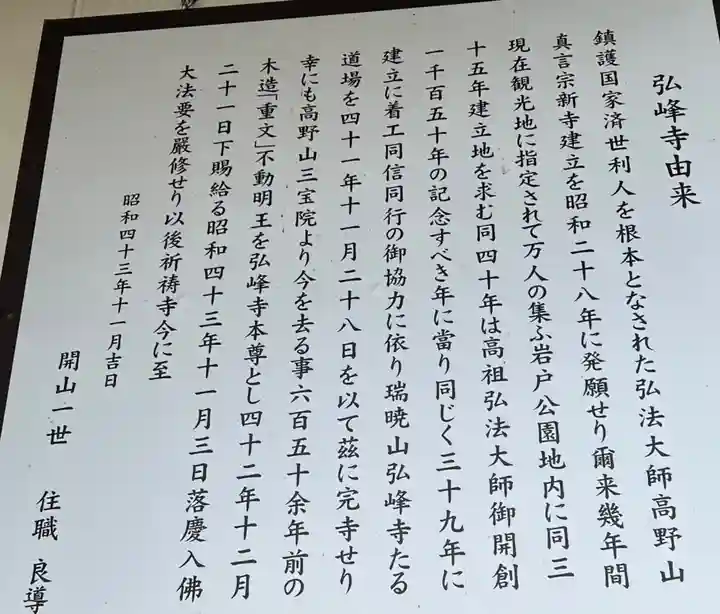 弘峰寺由来
鎮護国家済世利人を根本となされた弘法大師高野山
真言宗新寺建立を昭和二十八年に発願せり爾来幾年間
現在観光地に指定されて万人の集ふ岩戸公園地内に同三
十五年建立地を求む同四十年は高祖弘法大師御開創
一千百五十年の記念すべき年に當り同じく三十九年に
建立に着工同信同行の御協力に依り瑞暁山弘峰寺たる
道場を四十一年十一月二十八日を以て茲に完寺せり
幸にも高野山三宝院より今を去る事六百五十余年前の
木造「重文」不動明王を弘峰寺本尊とし四十二年十二月
二十一日下賜給る昭和四十三年十一月三日落慶入佛
大法要を嚴修せり以後祈祷寺今に至
昭和四十三年十一月吉日
開山一世 住職 良導